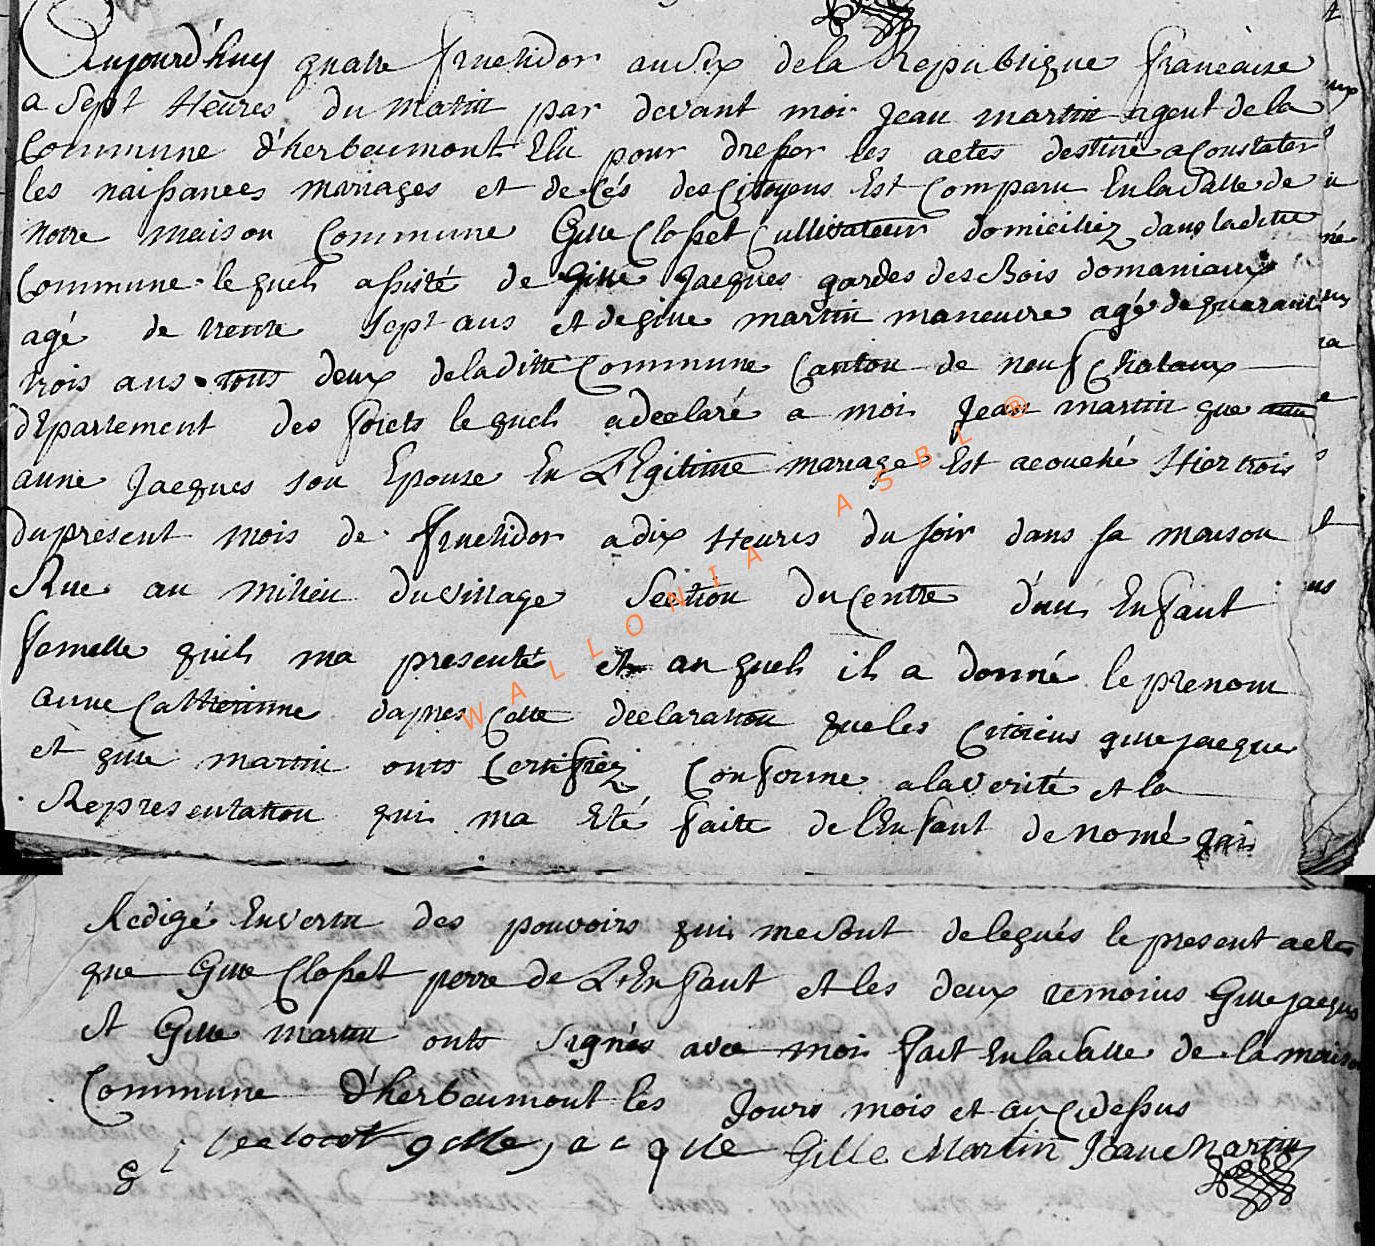 Aujourd'huy quatre fructidor an Six de la Republique francaise
a Sept Heures du matin par devant moi Jean martin agent de la
Commune d'herbeumont Elu pour dresser les actes destiné a Constater
les naissances mariages et decés des Citoyens Est Comparu En la Salle de
notre maison Commune Gille Closset Cultivateur domiciliez dans laditte
Commune lequel assisté de Gille Jacques gardes des Bois domaniaux
agé de trente sept ans et de gille martin maneuvre agé de quarante
trois ans tous deux deladitte Commune Canton de neufchataux
département des forets lequel a declaré a moi Jean martin que
anne Jacques son Epouse En LEgitime mariage Est acouché Hier trois
du present mois de fructidor a dix Heures du soir dans sa maison
Rue au milieu du village Section du Centre d'un Enfant
femelle quil ma presenté et au quel il a donné le prenom
anne Catherinne dapres Cette declaration que les Citoiens gille jacque
et gille martin onts Certifiéz Conforme a la verité et la
Representation qui ma Eté faite de lEnfant denomé jai
Redigé En vertu des pouvoirs qui me Sont delegués le present acte
que Gille Closset perre de L'Enfant et les deux temoins Gille jacques
et Gille martin onts Signés avec moi fait En la Salle de la maison
Commune d'herbeumont les Jours mois et an Cidessus
gille jacque Gille Martin Jean Martin
WALLONIA ASBL ®